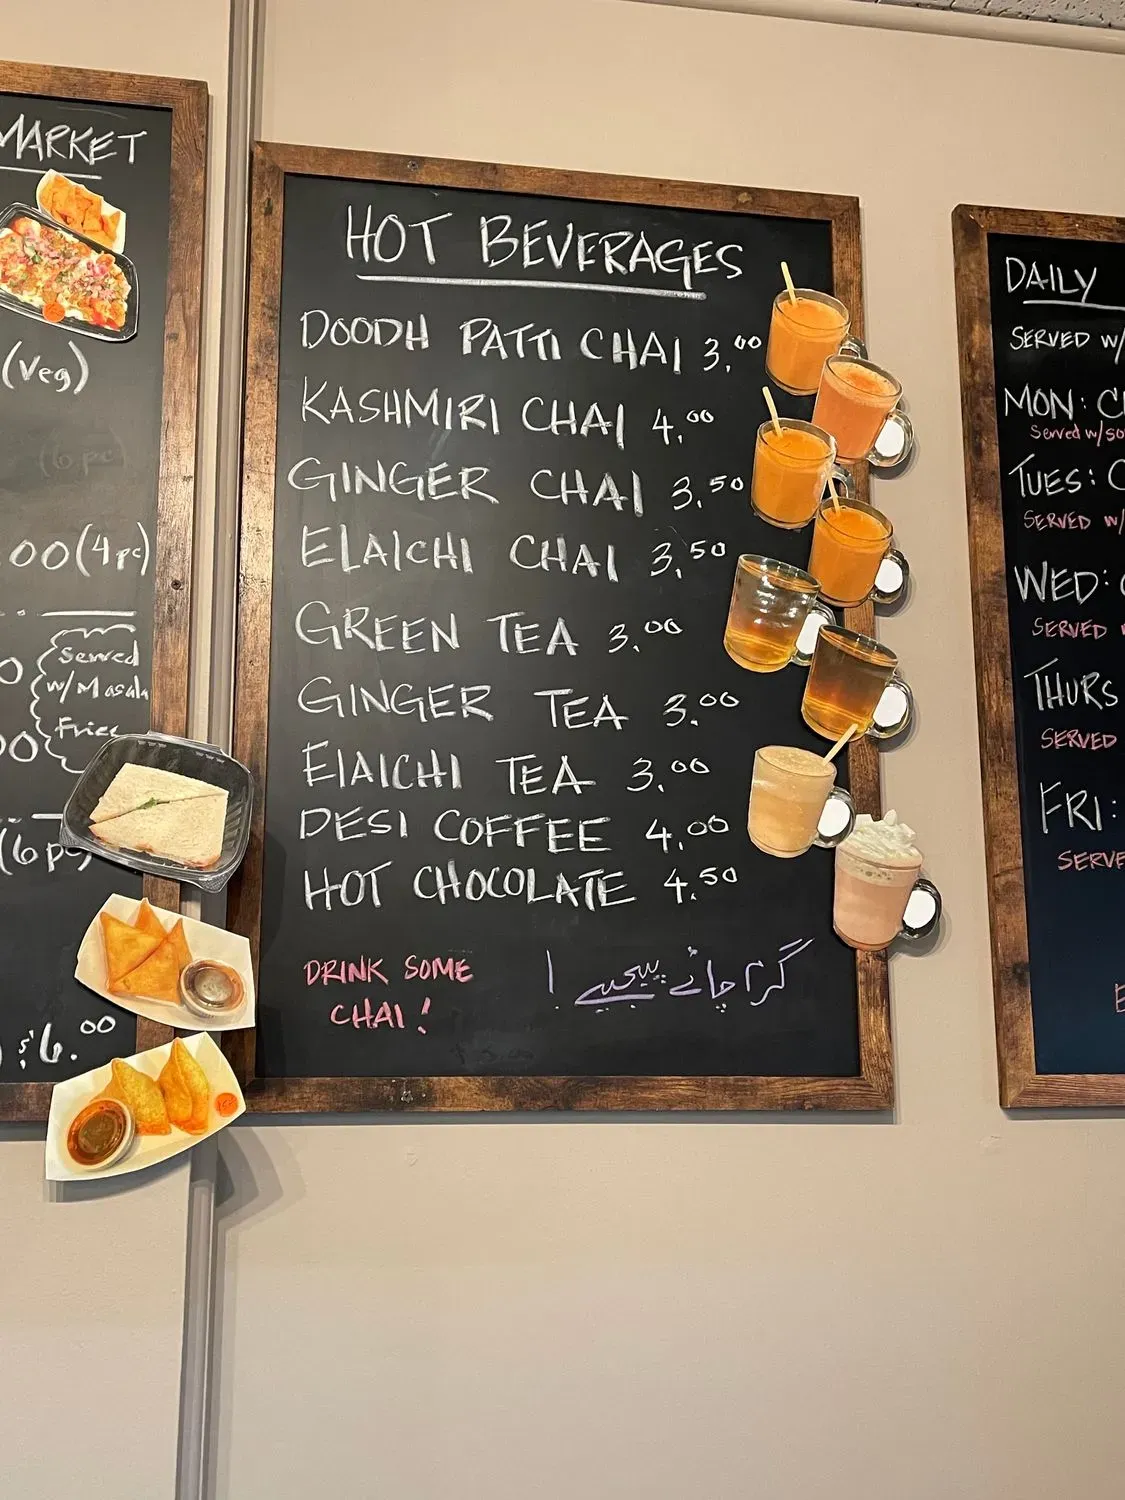 MARKET
(Veg)
(6 pc)
.00 (4 pc)
Served
w/ Masala
Fries
(6 pc)
6.00
HOT BEVERAGES
DOODH PATTI CHAI 3.00
KASHMIRI CHAI 4.00
GINGER CHAI 3.50
ELAICHI CHAI 3.50
GREEN TEA 3.00
GINGER TEA 3.00
ElAICHI TEA 3.00
DESI COFFEE 4.00
HOT CHOCOLATE 4.50
DRINK SOME
CHAI!
کڑا چائے پیجیے !
DAILY
SERVED W/
MON: C
Served w/
TUES:
SERVED W/
WED:
SERVED
THURS
SERVED
FRI:
SERVE